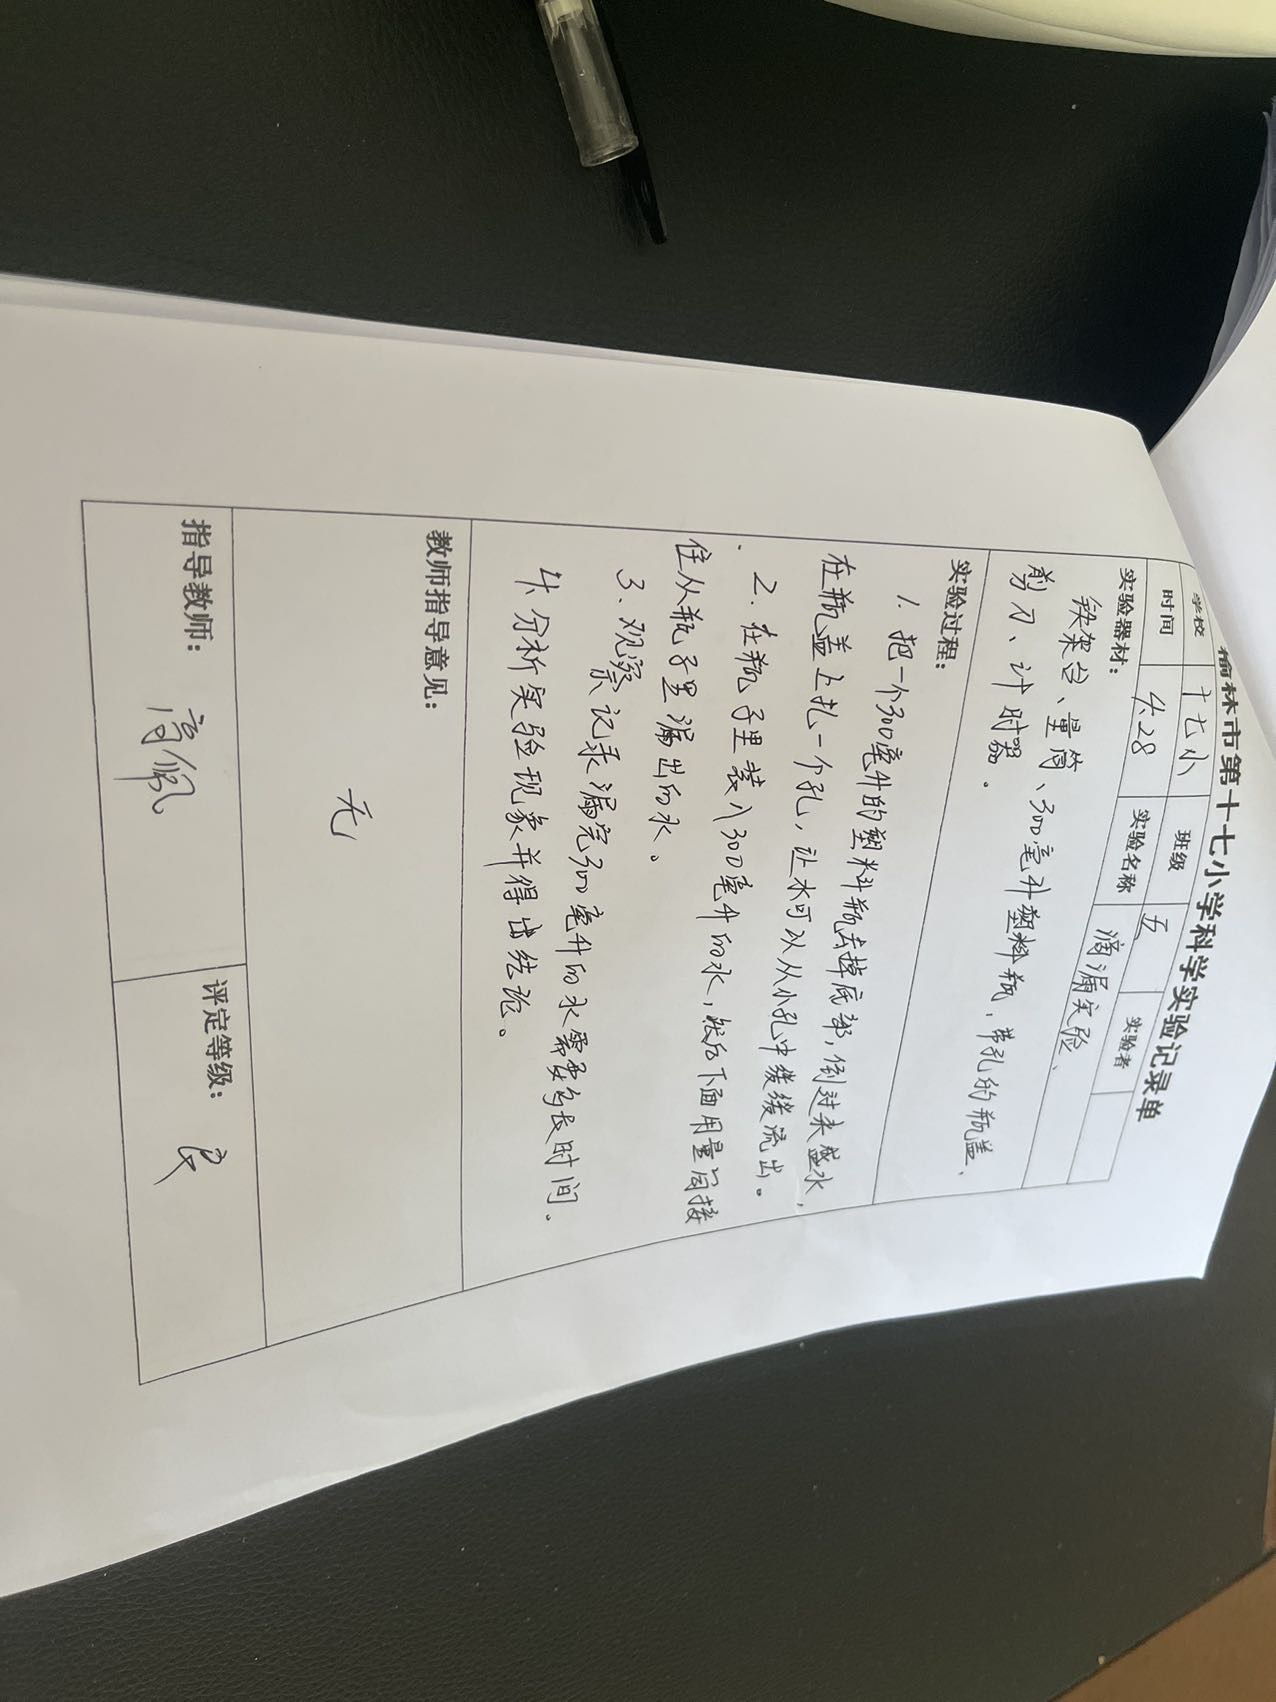 榆林市第十七小学科学实验记录单
学校 十七小 班级 五 实验者
时间 4.28 实验名称 滴漏实验
实验器材:
铁架台、量筒、300毫升塑料瓶、带孔的瓶盖、
剪刀、计时器.
实验过程:
1. 把一个300毫升的塑料瓶去掉底部,倒过来盛水,
在瓶盖上扎一个孔,让水可以从小孔中缓缓流出。
2. 在瓶子里装入300毫升的水,然后下面用量筒接
住从瓶子里漏出的水。
3. 观察记录漏完300毫升的水需要多长时间.
4. 分析实验现象并得出结论。
教师指导意见:
无
指导教师: 高佩 评定等级: 良